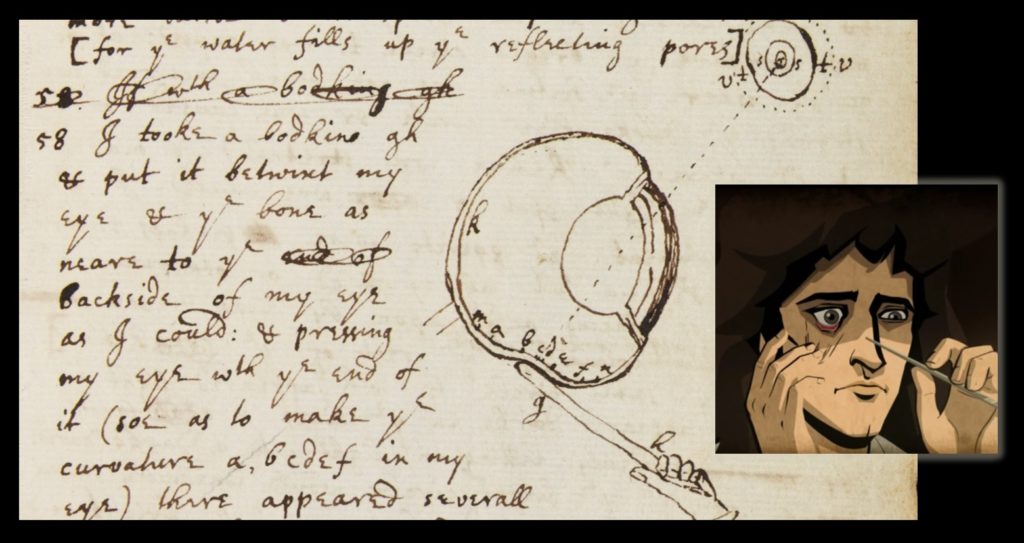 more
[for yͤ water fills up yͤ reflecting pores]
58. If wth a bodking gh
58 I tooke a bodkine gh
& put it betwixt my
eye & yͤ bone as
neare to yͤ end of
backside of my eye
as I could: & pressing
my eye wth yͤ end of
it (soe as to make yͤ
curvature a, bcdef in my
eye) there appeared severall
v t s s t v
k
m a b c d e f n
g
h